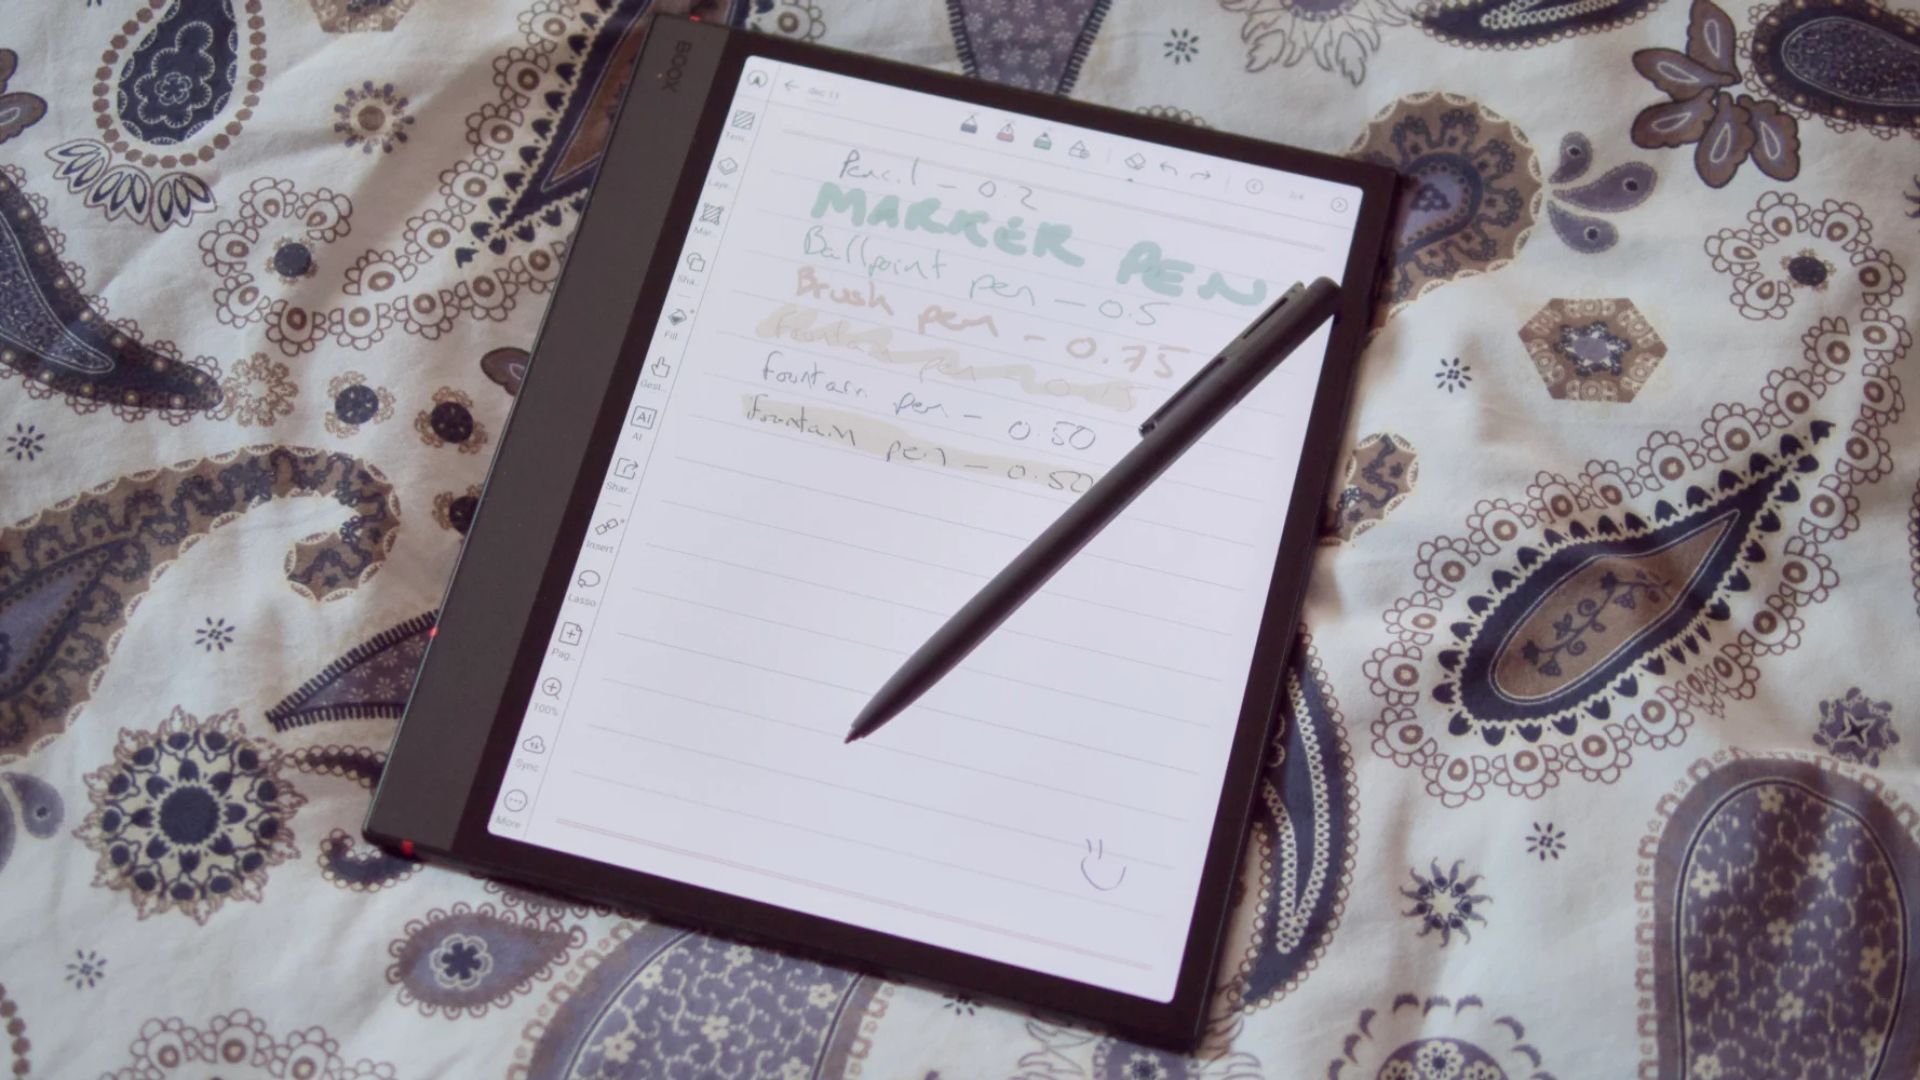 BOOX
doc 11
Pencil - 0.2
MARKER PEN
Ballpoint pen - 0.5
Brush pen - 0.75
fountain pen
fountain pen - 0.50
fountain pen - 0.50
Laye..
Mar..
Sha..
Fill
Gest..
AI
AI
Shar..
Insert
Lasso
Pag..
100%
Sync
More